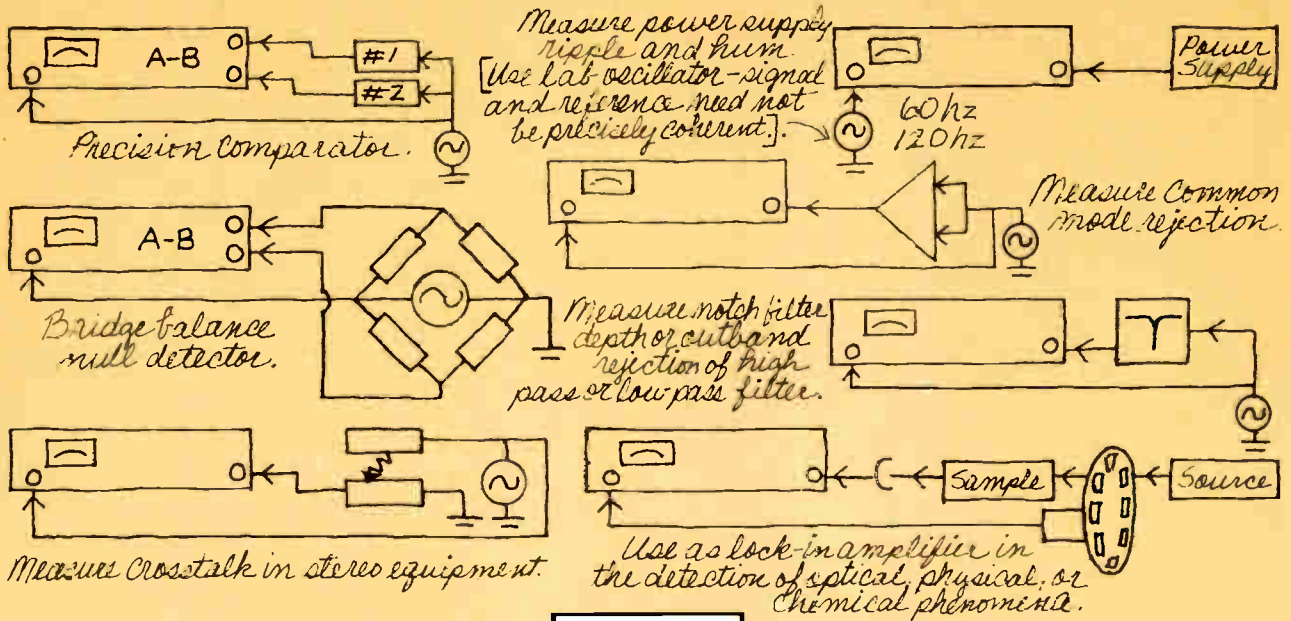 A-B
#1
#2
Precision Comparator.
Measure power supply
ripple and hum.
[Use lab oscillator-signal
and reference need not
be precisely coherent].
60hz
120hz
Power
Supply
A-B
Bridge balance
null detector.
Measure Common
mode rejection.
Measure notch filter
depth or cutband
rejection of high
pass or low-pass filter.
Measure crosstalk in stereo equipment.
Sample
Source
Use as lock-in amplifier in
the detection of optical, physical, or
Chemical phenomena.